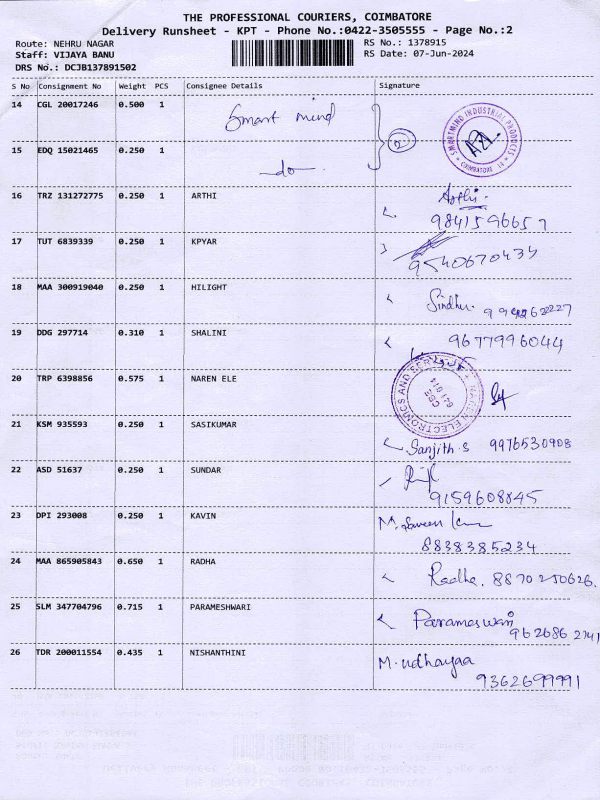 THE PROFESSIONAL COURIERS, COIMBATORE
Delivery Runsheet - KPT - Phone No.:0422-3505555 - Page No.:2
Route: NEHRU NAGAR
RS No.: 1378915
Staff: VIJAYA BANU
RS Date: 07-Jun-2024
DRS No.: DCJB137891502
S No Consignment No Weight PCS Consignee Details Signature
14 CGL 20017246 0.500 1 Smart mind
SMARTMIND INDUSTRIAL PRODUCTS
COIMBATORE
15 EDQ 15021465 0.250 1 -do-
16 TRZ 131272775 0.250 1 ARTHI Arthi.
9841596657
17 TUT 6839339 0.250 1 KPYAR
9540670434
18 MAA 300919040 0.250 1 HILIGHT Sindhu.
19 DDG 297714 0.310 1 SHALINI 9677996044
20 TRP 6398856 0.575 1 NAREN ELE
NAREN ELECTRONICS AND
CBE
21 KSM 935593 0.250 1 SASIKUMAR Sanjith.S 9976530908
22 ASD 51637 0.250 1 SUNDAR
9159608845
23 DPI 293008 0.250 1 KAVIN
8838385234
24 MAA 865905843 0.650 1 RADHA Radha. 8870250626.
25 SLM 347704796 0.715 1 PARAMESHWARI Parameswari
9626862741
26 TDR 200011554 0.435 1 NISHANTHINI M. udhayaa
9362699991